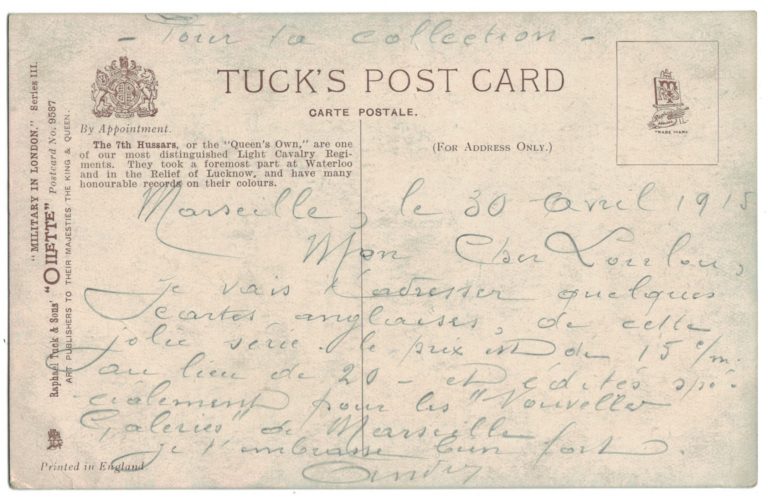 - Pour ta collection -
TUCK'S POST CARD
CARTE POSTALE.
By Appointment.
(FOR ADDRESS ONLY.)
TRADE MARK
The 7th Hussars, or the "Queen's Own," are one
of our most distinguished Light Cavalry Regi-
ments. They took a foremost part at Waterloo
and in the Relief of Lucknow, and have many
honourable records on their colours.
"MILITARY IN LONDON." Series III.
Raphael Tuck & Sons' "OILETTE" Postcard No. 9587
ART PUBLISHERS TO THEIR MAJESTIES THE KING & QUEEN.
Marseille, le 30 avril 1915
Mon Cher Loulou,
Je vais t'adresser quelques
cartes anglaises, de cette
jolie série. le prix est de 15 c/m.
au lieu de 20 - et édités spé-
cialement pour les "Nouvelles
Galeries" de Marseille
je t'embrasse bien fort.
André
Printed in England